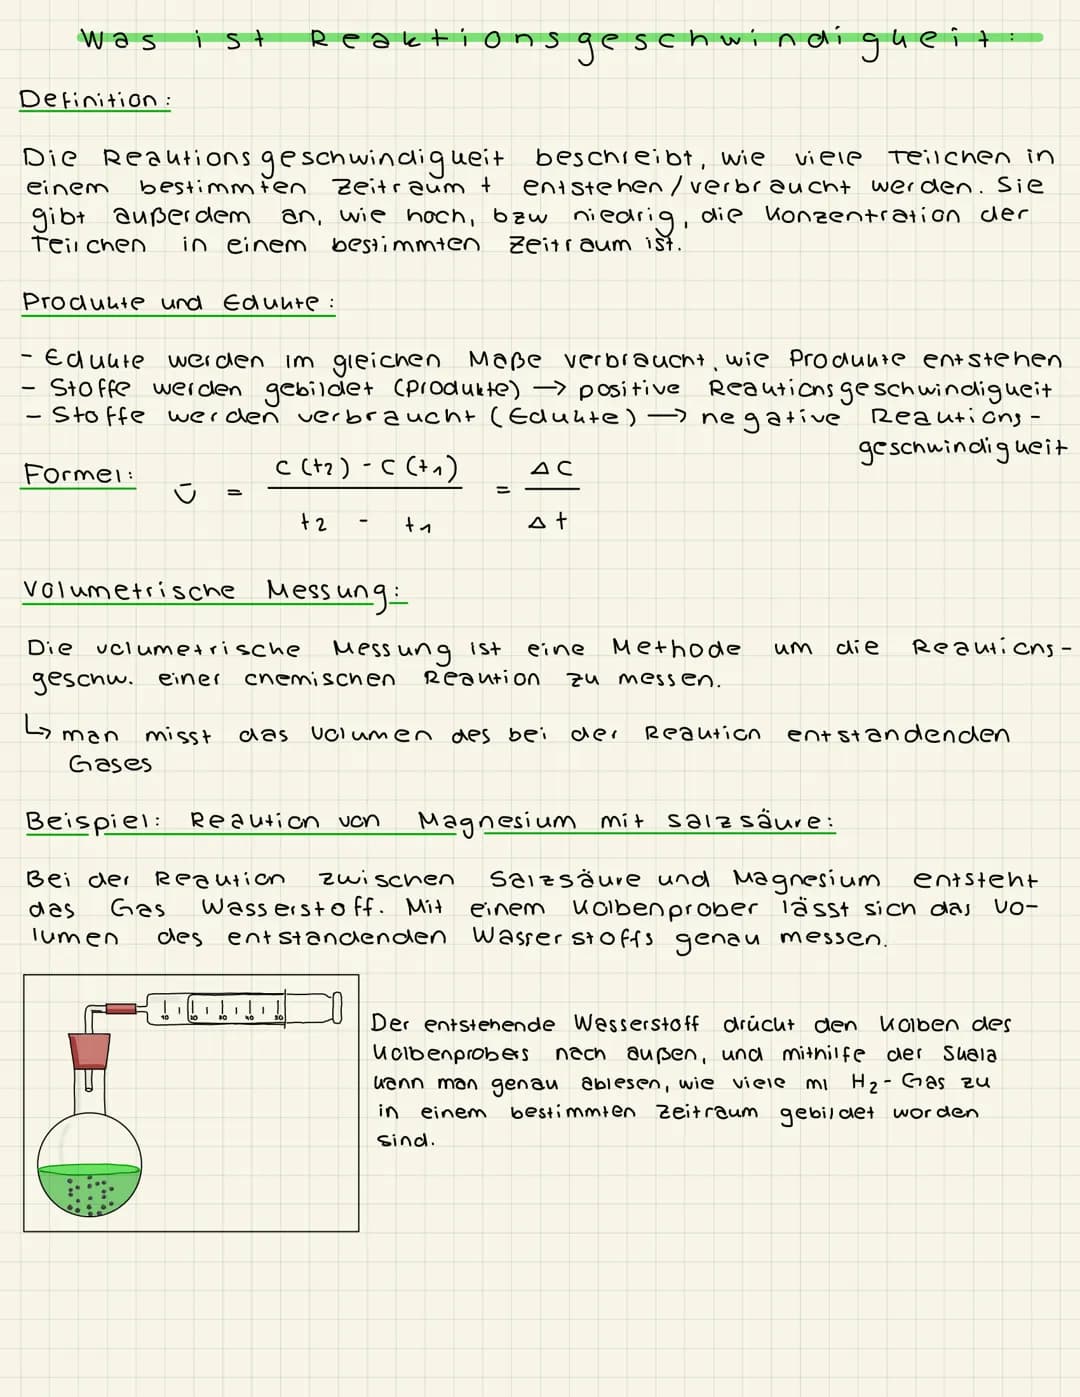 Was ist Reaktionsgeschwindigkeit:
Definition:
Die Reaktionsgeschwindigkeit beschreibt, wie viele Teilchen in
einem bestimmten Zeitraum t entstehen/verbraucht werden. Sie
gibt außerdem an, wie hoch, bzw niedrig, die Konzentration der
Teilchen in einem bestimmten Zeitraum ist.
Produkte und Edukte:
- Edukte werden im gleichen Maße verbraucht, wie Produkte entstehen
- Stoffe werden gebildet (Produkte) → positive Reaktionsgeschwindigkeit
- Stoffe werden verbraucht (Edukte) → negative Reaktions-
geschwindigkeit
Formel: ῡ = c(t2) - c(t1) / t2 - t1 = Δc / Δt
Volumetrische Messung:
Die volumetrische Messung ist eine Methode um die Reaktions-
geschw. einer chemischen Reaktion zu messen.
↳ man misst das Volumen des bei der Reaktion entstandenden
Gases
Beispiel: Reaktion von Magnesium mit Salzsäure:
Bei der Reaktion zwischen Salzsäure und Magnesium entsteht
das Gas Wasserstoff. Mit einem Kolbenprober lässt sich das Vo-
lumen des entstandenden Wasserstoffs genau messen.
10 20 30 40 50
Der entstehende Wasserstoff drückt den Kolben des
Kolbenprobers nach außen, und mithilfe der Skala
kann man genau ablesen, wie viele ml H₂-Gas zu
in einem bestimmten Zeitraum gebildet worden
sind.